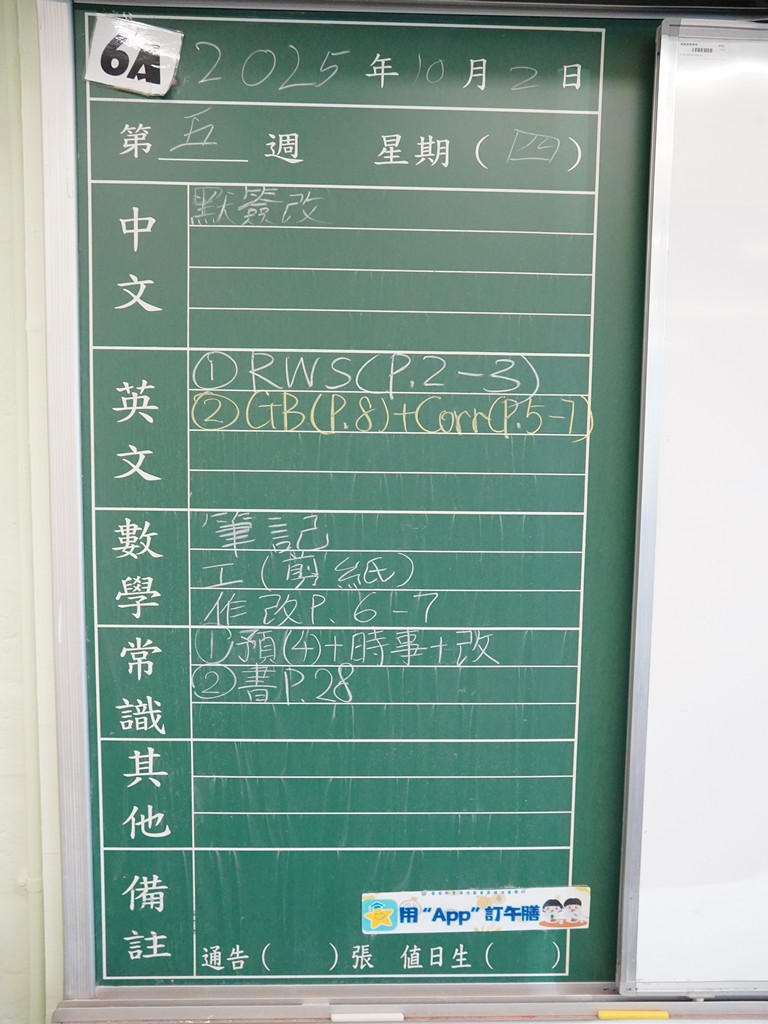 6A
2025年10月2日
第五週 星期(四)
中文
默簽改
英文
①RWS(P.2-3)
②GB(P.8)+Corr(P.5-7)
數學
筆記
工(剪紙)
作改P.6-7
常識
①預(4)+時事+改
②書P.28
其他
備註
用“App”訂午膳
通告( )張 值日生( )